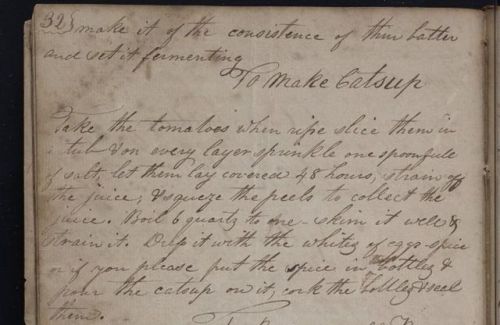 32
& make it of the consistence of thin batter
and set it fermenting
To Make Catsup
Take the tomatoes when ripe slice them in
a tub & on every layer sprinkle one spoonfule
of salt, let them lay covered 48 hours, strain off
the juice, & squeze the peels to collect the
juice. Boil 6 quarts to one - skim it well &
strain it. Drip it with the whites of eggs - spice
or if you please put the spice in bottles &
pour the catsup on it, cork the bottles & seal
them.